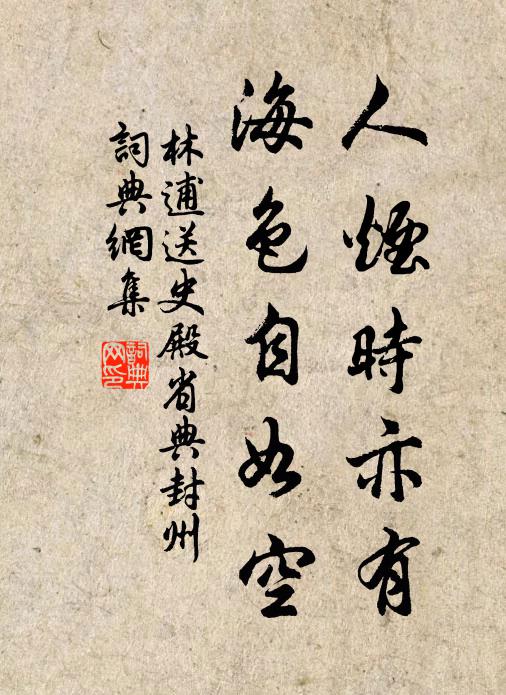 人煙時亦有
海色自如空
林逋送史殿省典封州
詞典網集
詞典網印